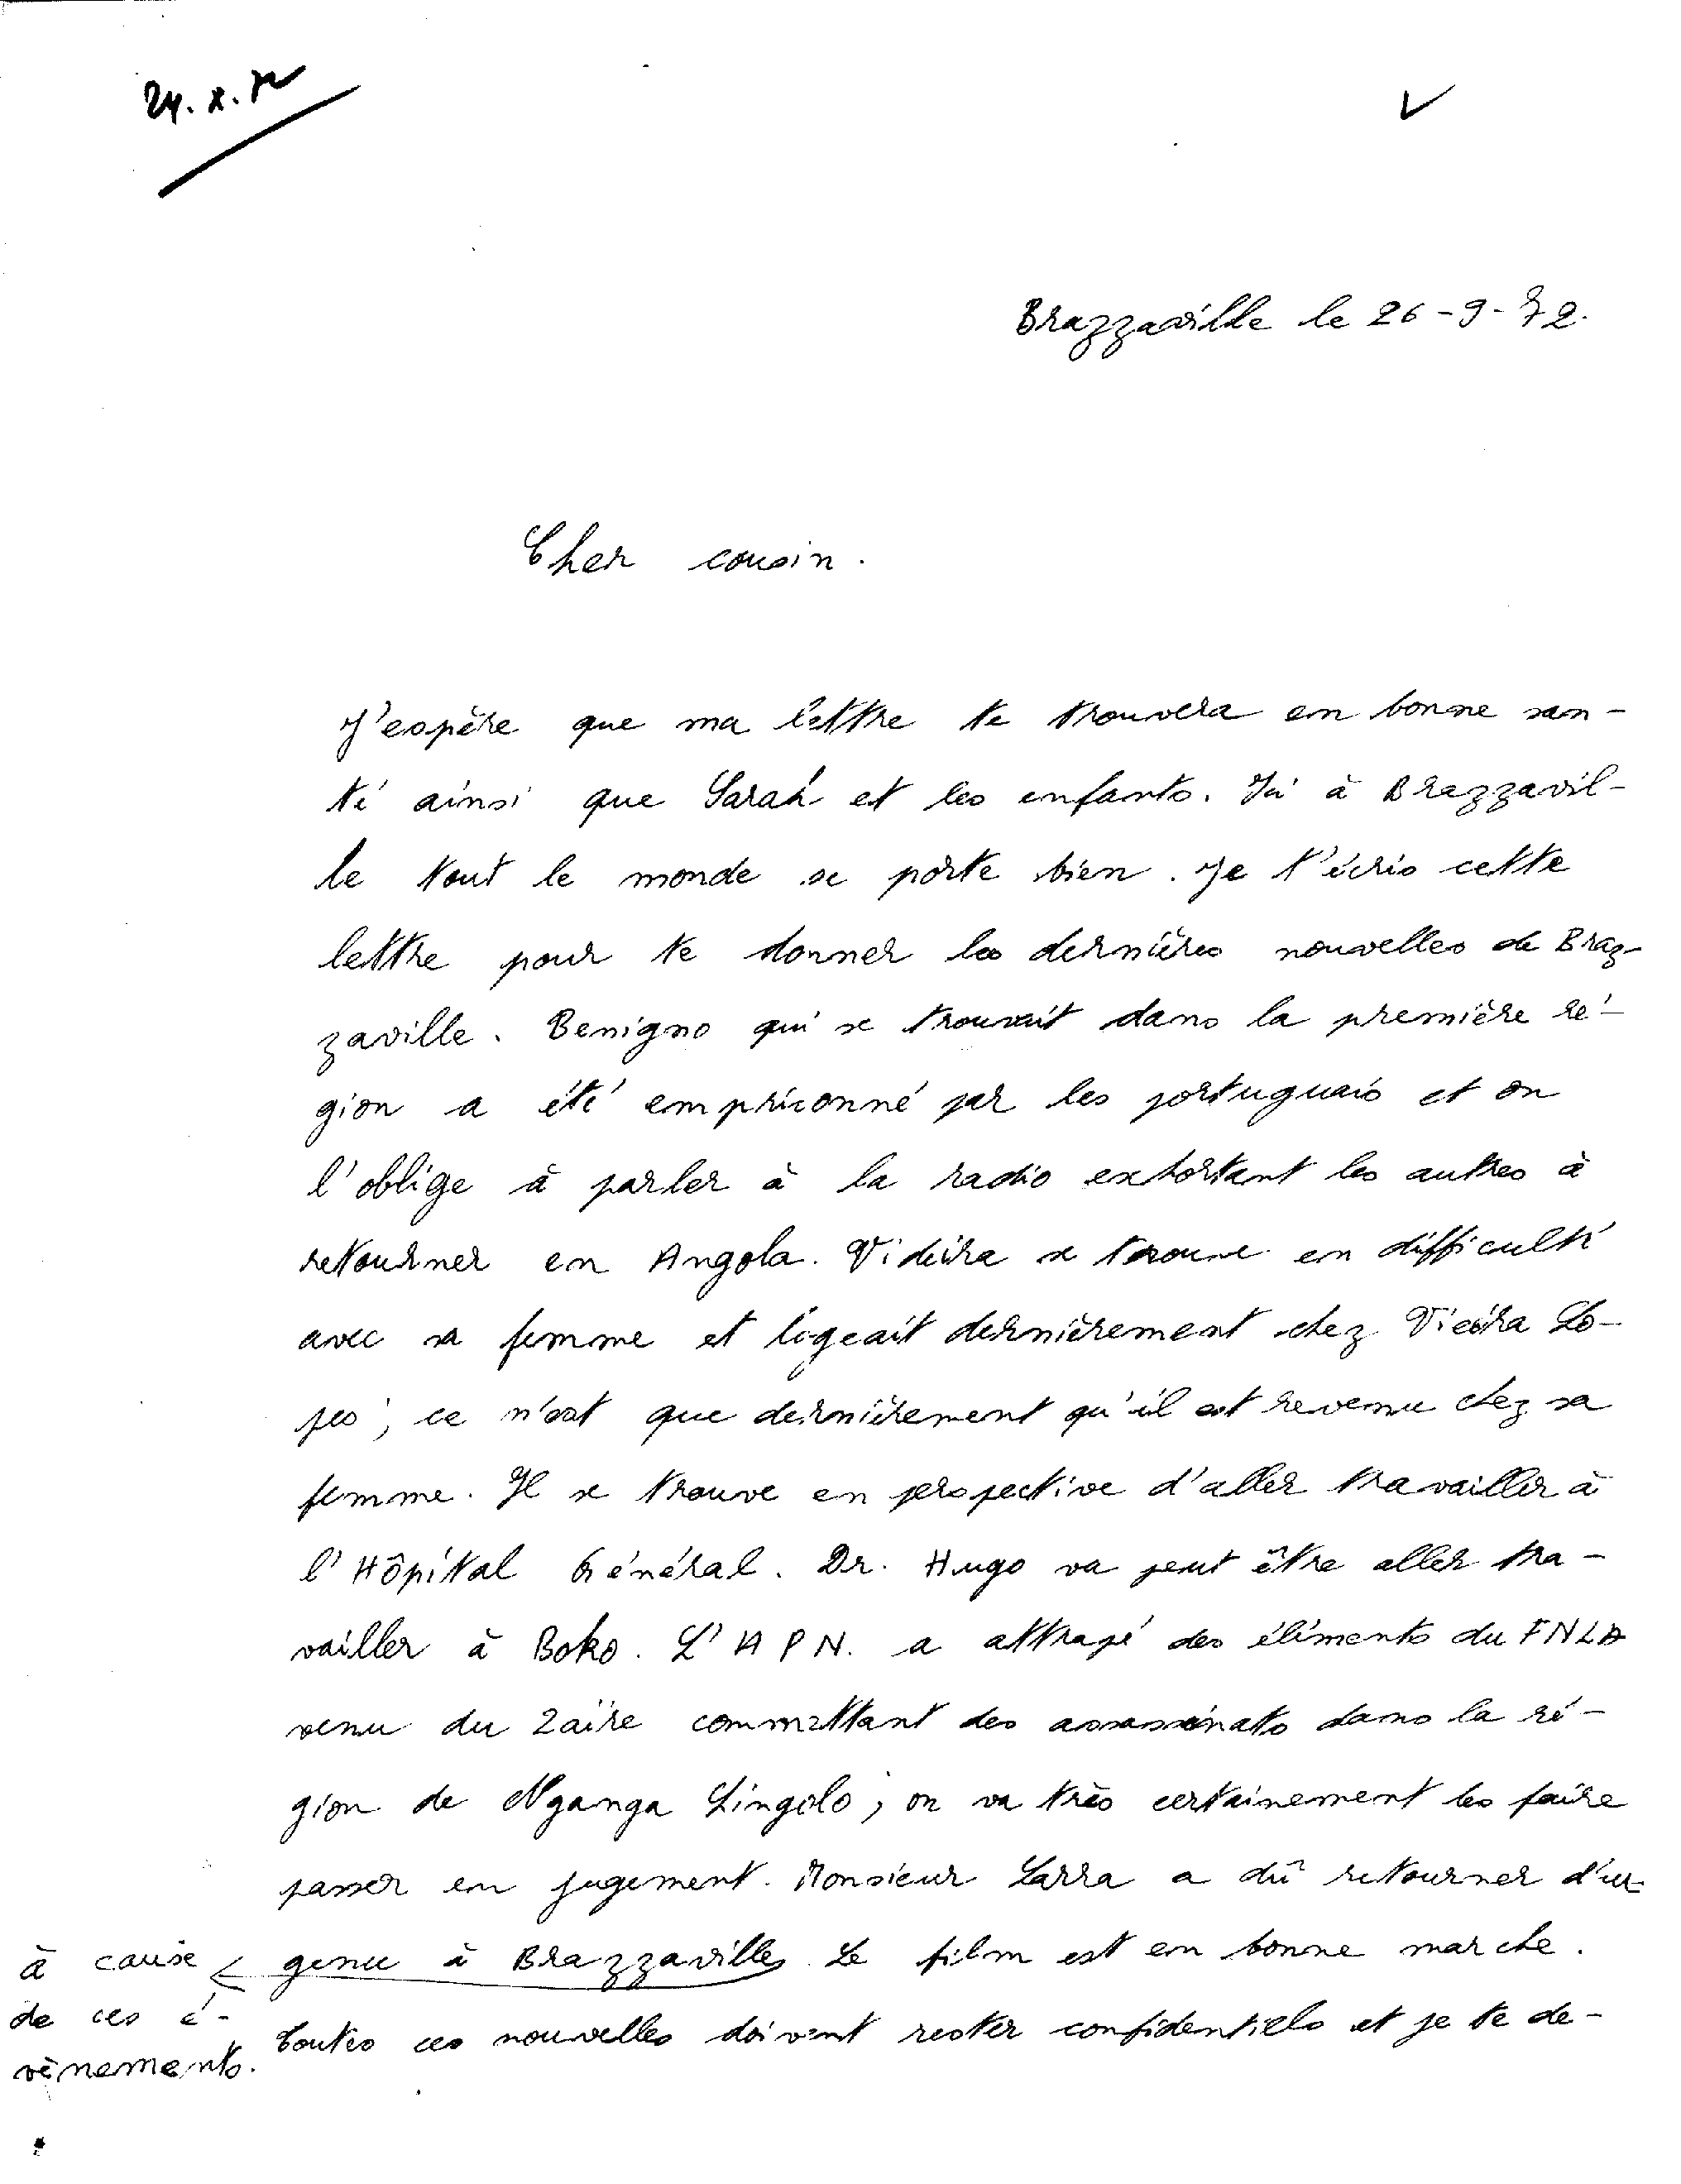 24.X.72
V
Brazzaville le 26-9-72.
Cher cousin.
J'espère que ma lettre te trouvera en bonne san-
té ainsi que Sarah et les enfants. Ici à Brazzavil-
le tout le monde se porte bien. Je t'écris cette
lettre pour te donner les dernières nouvelles de Braz-
zaville. Benigno qui se trouvait dans la première ré-
gion a été empriconné par les portuguais et on
l'oblige à parler à la radio exhortant les autres à
retourner en Angola. Videira se trouve en difficulté
avec sa femme et logeait dernièrement chez Vieira Lo-
pes; ce n'est que dernièrement qu'il est revenu chez sa
femme. Il se trouve en perspective d'aller travailler à
l'Hôpital Général. Dr. Hugo va peut être aller tra-
vailler à Boko. L'APN. a attrapé des éléments du FNLA
venu du Zaïre committant des assassinats dans la ré-
gion de Nganga Lingolo; on va très certainement les faire
passer en jugement. Monsieur Sarra a dû retourner d'ur-
gence à Brazzaville. Le film est en bonne marche.
Toutes ces nouvelles doivent rester confidentiels et je te de-
à cause
de ces é-
vènements.